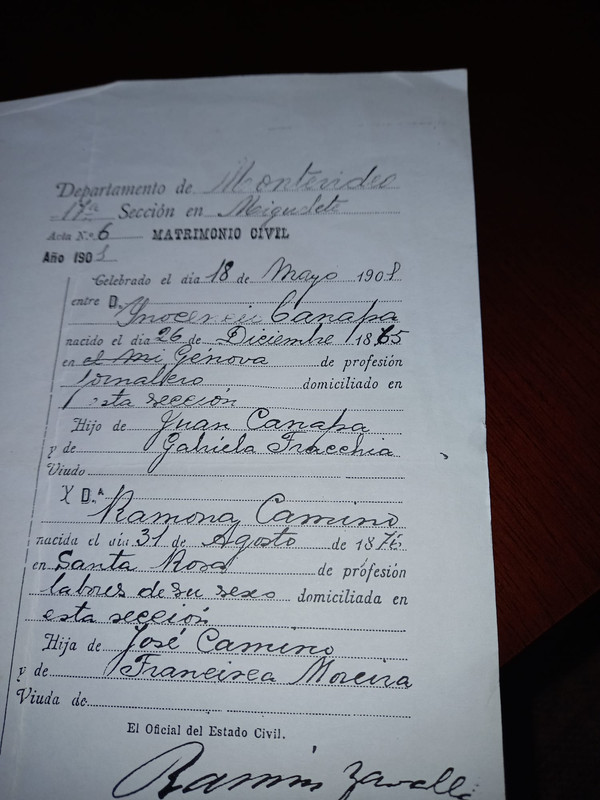 Departamento de Montevideo
17ª Sección en Miguelete
Acta N.º 6 MATRIMONIO CIVIL
Año 1908
Celebrado el dia 18 de Mayo 1908
entre D.
Ynocencio Canapa
nacido el dia 26 de Diciembre 1865
en el mi Génova de profesión
jornalero domiciliado en
esta sección
Hijo de Juan Canapa
y de Gabriela Fracchia
Viudo
Y D.ª
Ramona Camino
nacida el dia 31 de Agosto de 187
en Santa Rosa de profésión
labores de su sexo domiciliada en
esta sección
Hija de José Camino
y de Francisca Moreira
Viuda de
El Oficial del Estado Civil.
Ramón Zavalla